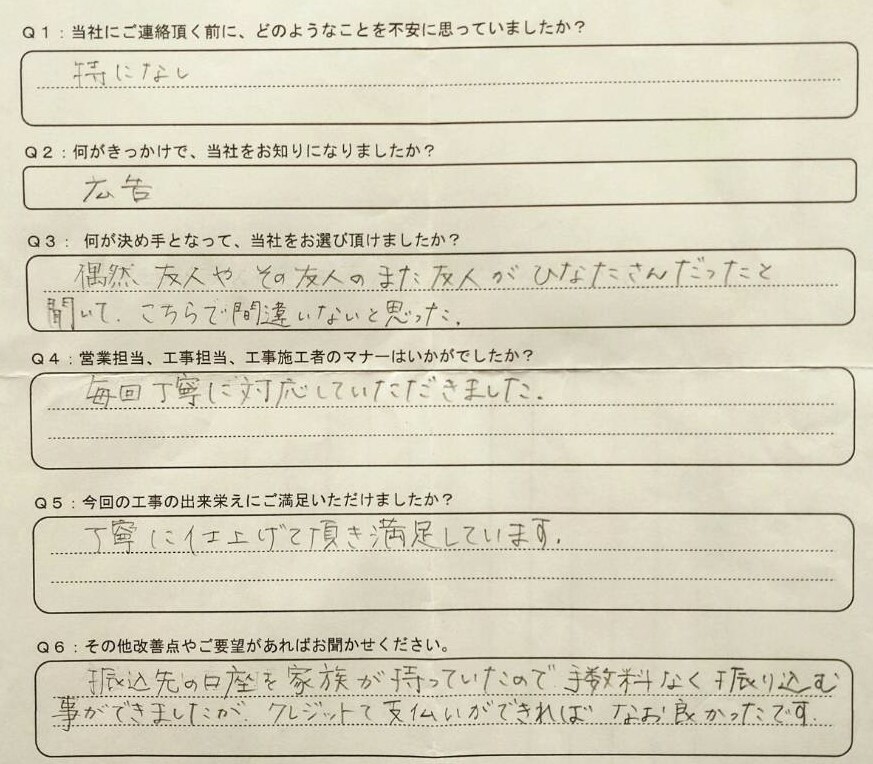 Q1:当社にご連絡頂く前に、どのようなことを不安に思っていましたか？
特になし
Q2:何がきっかけで、当社をお知りになりましたか？
広告
Q3: 何が決め手となって、当社をお選び頂けましたか？
偶然 友人や その友人の また 友人が ひなたさんだったと
聞いて、こちらで間違いないと思った。
Q4:営業担当、工事担当、工事施工者のマナーはいかがでしたか？
毎回丁寧に対応していただきました。
Q5:今回の工事の出来栄えにご満足いただけましたか？
丁寧に仕上げて頂き満足しています。
Q6:その他改善点やご要望があればお聞かせください。
振込先の口座を家族が持っていたので 手数料なく振り込む
事ができましたが、クレジットで支払いができれば なお良かったです。